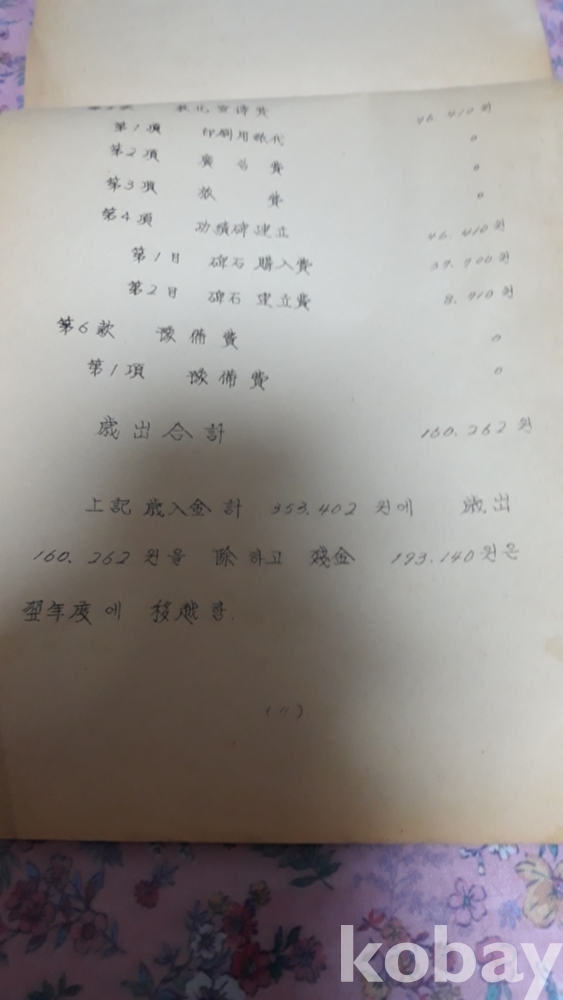 敎化宣传費 46.410원
第1項 印刷用紙代 0
第2項 廣告費 0
第3項 旅費 0
第4項 功績碑建立 46.410원
第1目 碑石購入費 37.700원
第2目 碑石建立費 8.710원
第6款 豫備費 0
第1項 豫備費 0
歲出合計 160.262원
上記歲入合計 353.402원에 歲出
160.262원을 除하고 殘金 193.140원은
翌年度에 移越함.
(11)
kobay